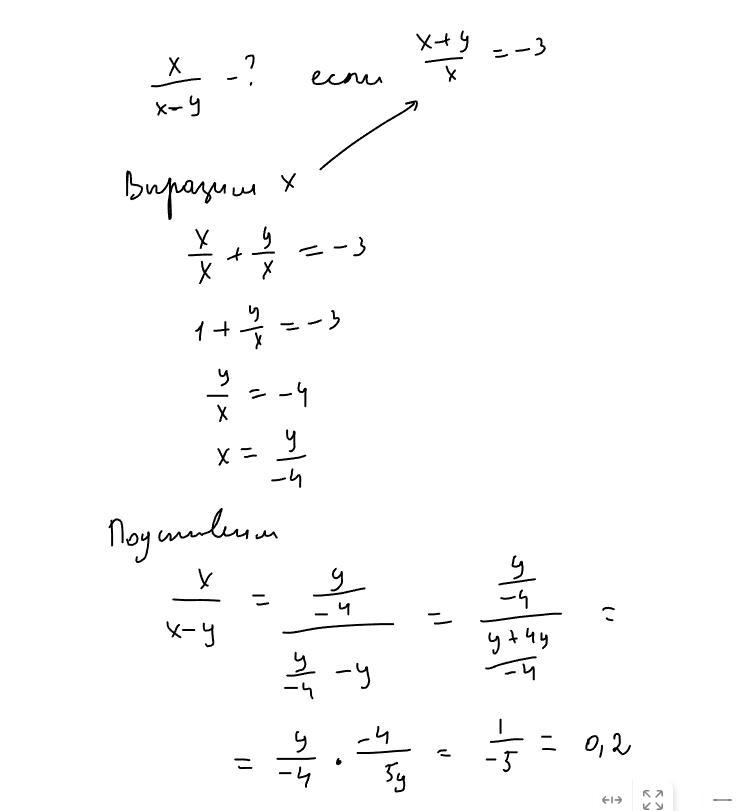 x/(x-y) - ? если (x+y)/x = -3
Виразим x
x/x + y/x = -3
1 + y/x = -3
y/x = -4
x = y/-4
Подставим
x/(x-y) = (y/-4)/(y/-4 - y) = (y/-4)/((y+4y)/-4) =
= y/-4 · -4/5y = 1/-5 = 0,2